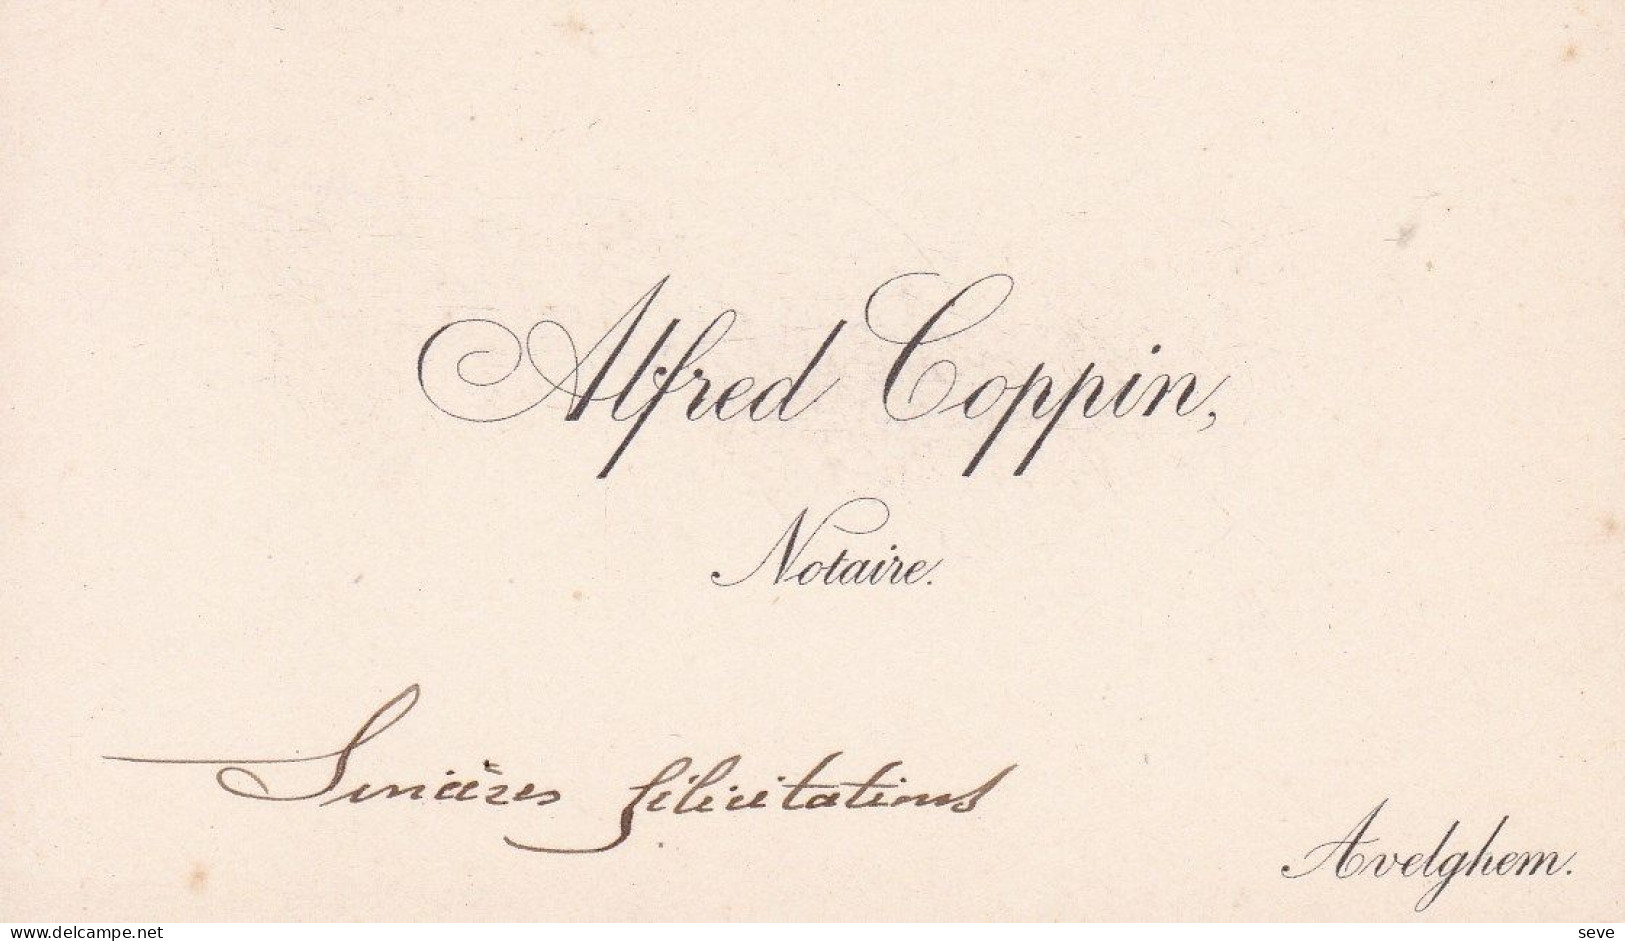 Alfred Coppin,
Notaire.
Sincères félicitations
Avelghem.
www.delcampe.net
seve